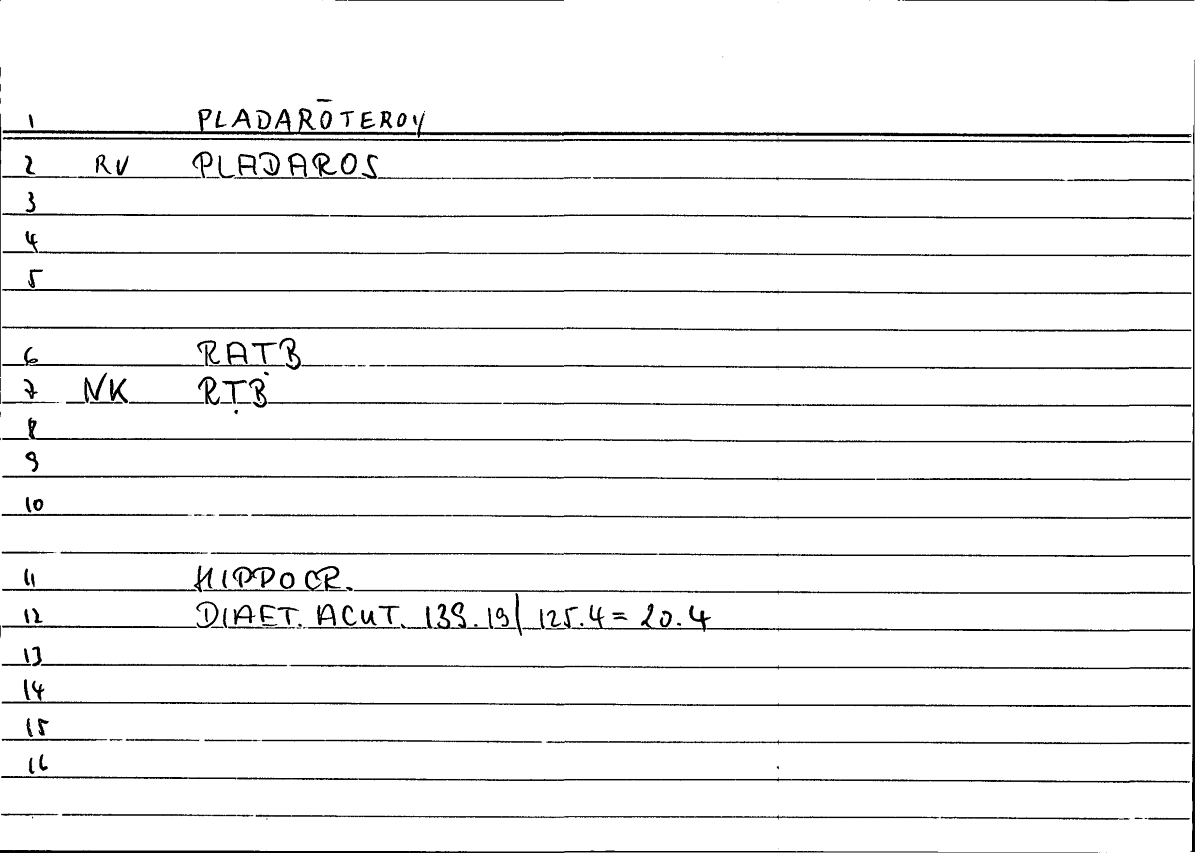 1 PLADARŌTEROY
2 RV PLADAROS
3
4
5
6 RATB
7 NK RṬB
8
9
10
11 HIPPOCR.
12 DIAET. ACUT. 139.19| 125.4 = 20.4
13
14
15
16